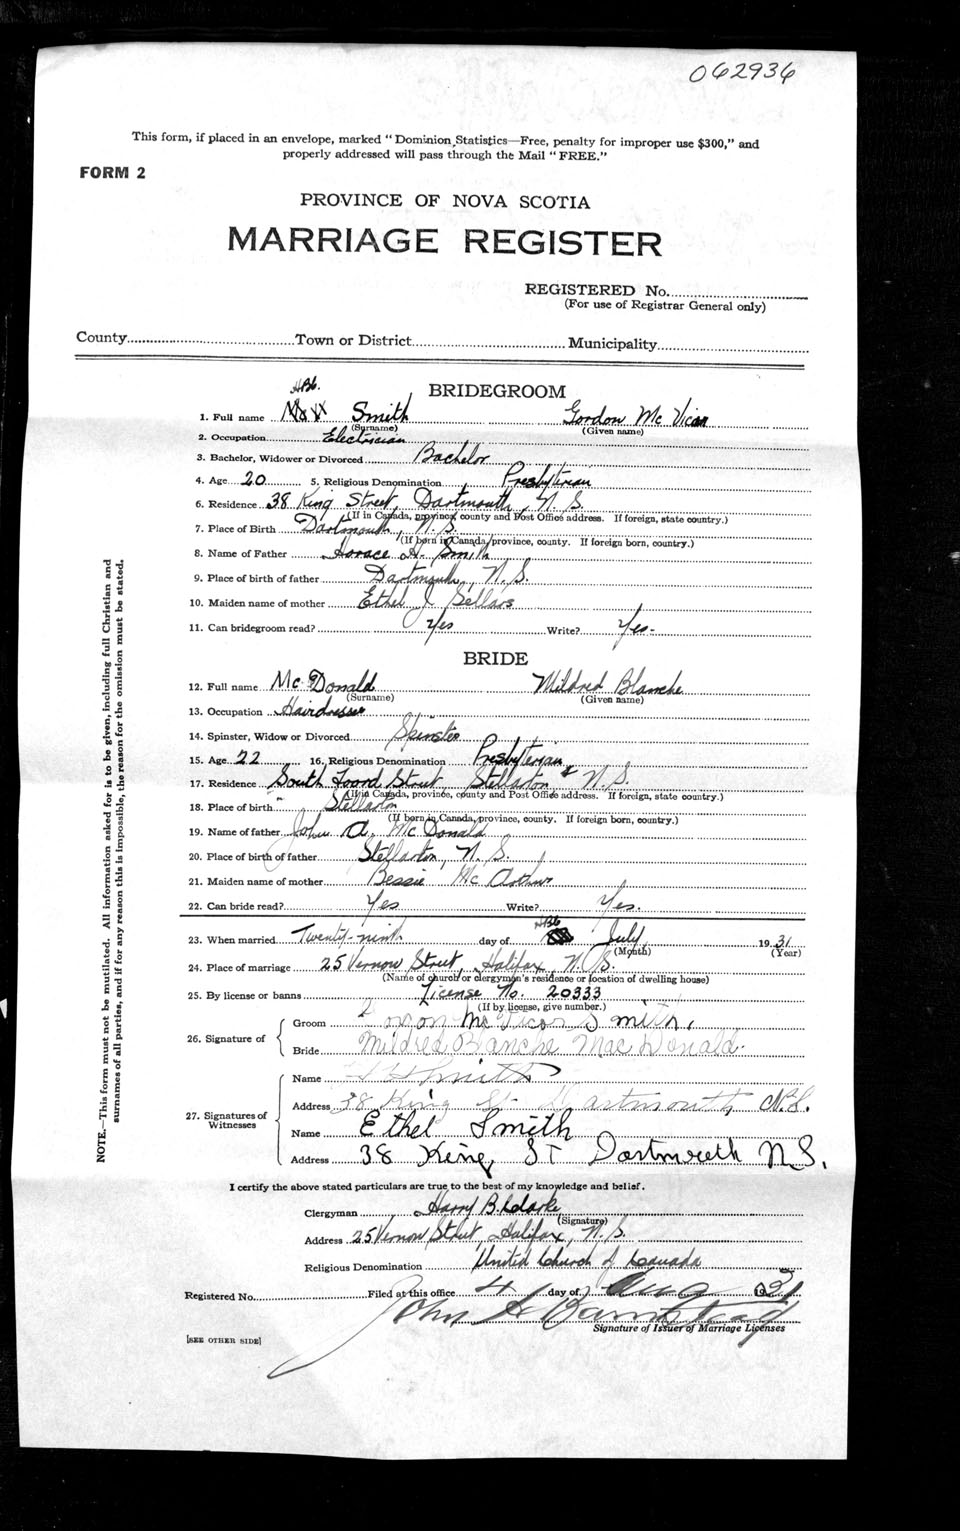 062936
This form, if placed in an envelope, marked "Dominion Statistics—Free, penalty for improper use $300," and
properly addressed will pass through the Mail "FREE."
FORM 2
PROVINCE OF NOVA SCOTIA
MARRIAGE REGISTER
REGISTERED No.
(For use of Registrar General only)
County Town or District Municipality
BRIDEGROOM
HBC.
1. Full name Smith Gordon Mc Vicar
(Surname) (Given name)
2. Occupation Electrician
3. Bachelor, Widower or Divorced Bachelor
4. Age 20 5. Religious Denomination Presbyterian
6. Residence 38 King Street, Dartmouth, N. S.
(If in Canada, province, county and Post Office address. If foreign, state country.)
7. Place of Birth Dartmouth, N. S.
(If born in Canada, province, county. If foreign born, country.)
8. Name of Father Horace H. Smith
9. Place of birth of father Dartmouth, N. S.
10. Maiden name of mother Ethel J Sellars
11. Can bridegroom read? Yes Write? Yes-
BRIDE
12. Full name Mc Donald Mildred Blanche
(Surname) (Given name)
13. Occupation Hairdresser
14. Spinster, Widow or Divorced Spinster
15. Age 22 16. Religious Denomination Presbyterian
17. Residence South Foord Street, Stellarton, N. S.
(If in Canada, province, county and Post Office address. If foreign, state country.)
18. Place of birth Stellarton
(If born in Canada, province, county. If foreign born, country.)
19. Name of father John A. Mc Donald
20. Place of birth of father Stellarton, N. S.
21. Maiden name of mother Bessie Mc Arthur
22. Can bride read? Yes Write? Yes.
HBC
23. When married Twenty-ninth day of July 1931
(Month) (Year)
24. Place of marriage 25 Vernon Street, Halifax, N. S.
(Name of church or clergyman's residence or location of dwelling house)
25. By license or banns License No. 20333
(If by license, give number.)
26. Signature of
Groom Gordon McVicar Smith.
Bride Mildred Blanche MacDonald.
27. Signatures of Witnesses
Name Smith
Address 38 King St Dartmouth N.S.
Name Ethel Smith
Address 38 King ST Dartmouth N.S.
I certify the above stated particulars are true to the best of my knowledge and belief.
Clergyman Harry B. Clarke
(Signature)
Address 25 Vernon Street, Halifax, N. S.
Religious Denomination United Church of Canada
Registered No. Filed at this office 4 day of Aug 1931
John A
Signature of Issuer of Marriage Licenses
[SEE OTHER SIDE]
NOTE.—This form must not be mutilated. All information asked for is to be given, including full Christian and
surnames of all parties, and if for any reason this is impossible, the reason for the omission must be stated.